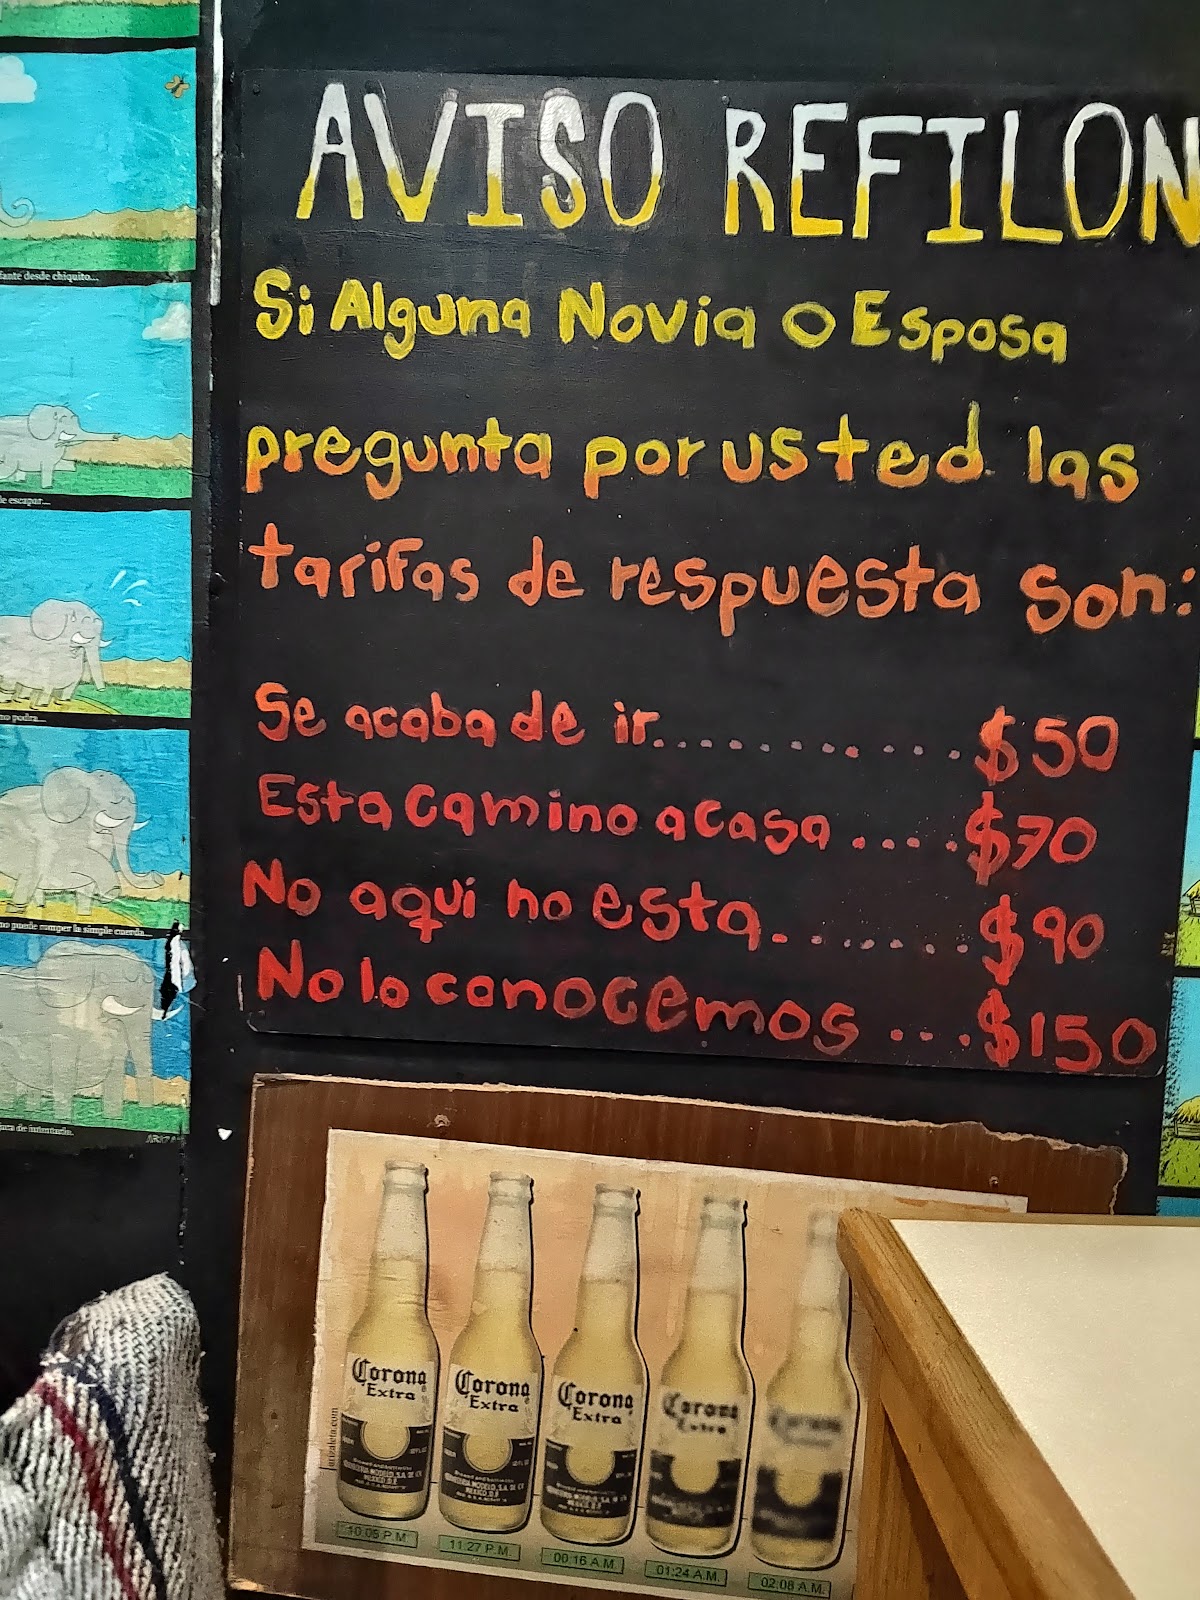 AVISO REFILON
Si Alguna Novia o Esposa
pregunta por usted las
tarifas de respuesta son:
Se acaba de ir............$50
Esta camino a casa.....$70
No aqui no esta........$90
No lo conocemos....$150
fante desde chiquito...
e escapar...
no podra...
no puede romper la simple cuerda...
de intentarlo.
Corona Extra
Corona Extra
Corona Extra
Corona Extra
Corona
artzaleta.com
10:05 P.M.
11:27 P.M.
00:16 A.M.
01:24 A.M.
02:08 A.M.